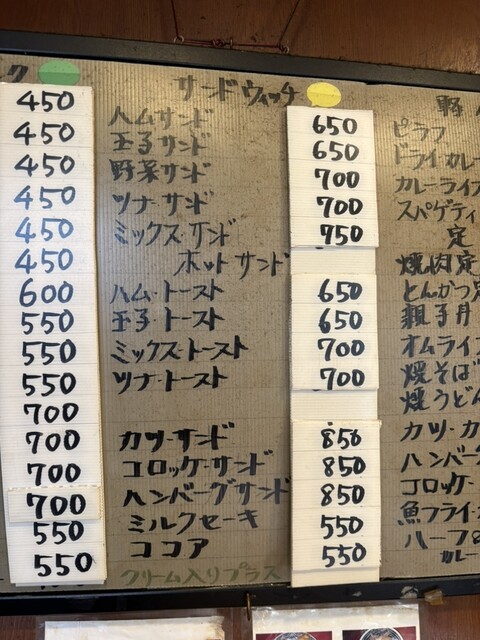 ク サンドウィッチ 軽
450 ハムサンド 650 ピラフ
450 玉子サンド 650 ドライカレー
450 野菜サンド 700 カレーライス
450 ツナ・サンド 700 スパゲティ
450 ミックス・サンド 750 定
450 ホットサンド 焼肉定
600 ハム・トースト 650 とんかつ定
550 玉子・トースト 650 親子丼
550 ミックス・トースト 700 オムライ
550 ツナ・トースト 700 焼そば
700 焼うどん
700 カツ・サンド 850 カツ・カ
700 コロッケ・サンド 850 ハンバー
700 ハンバーグサンド 850 コロッケ・
550 ミルクセーキ 550 魚フライ・
550 ココア 550 ハーフ
クリーム入りプラス カレー